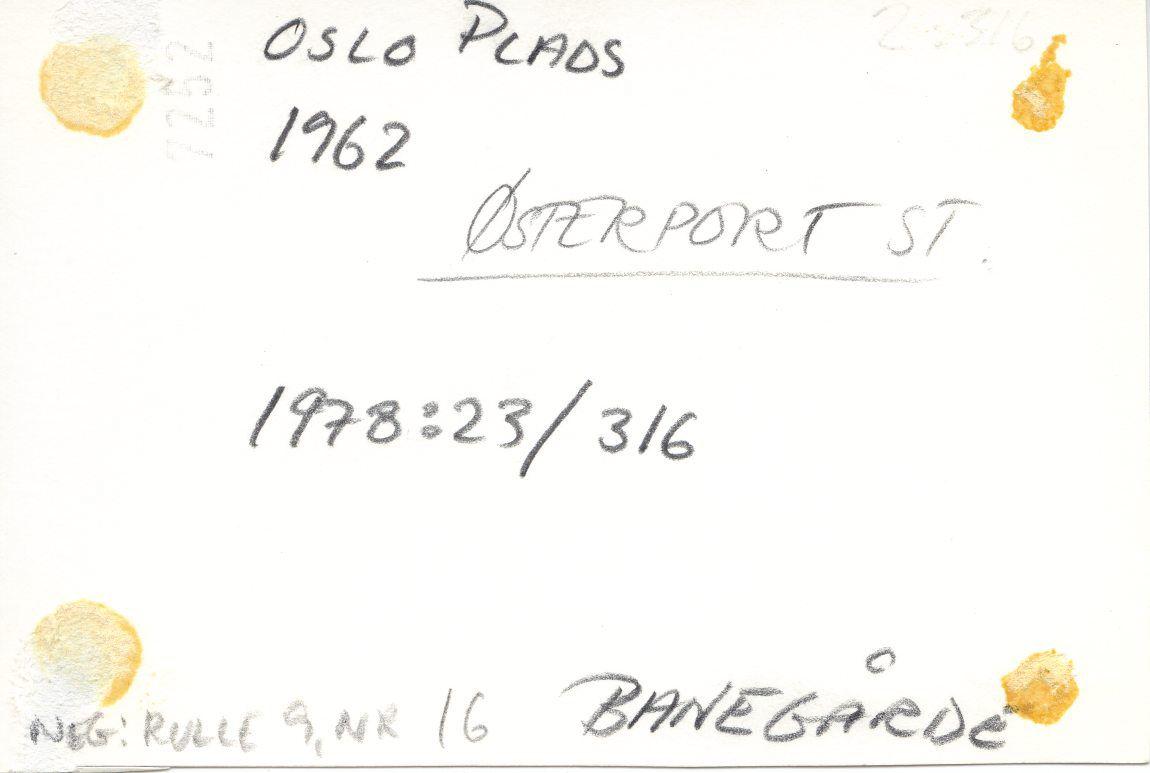 OSLO PLADS
1962
7252
ØSTERPORT ST.
1978:23/316
NEG: RULLE 9, NR 16
BANEGÅRDE